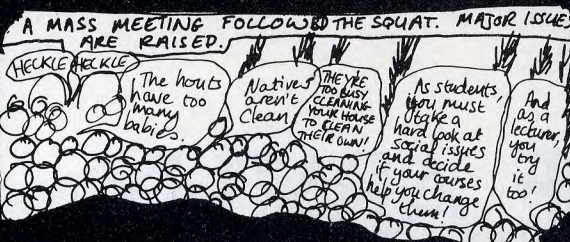 A MASS MEETING FOLLOWED THE SQUAT. MAJOR ISSUES
ARE RAISED.
HECKLE HECKLE
The houts
have too
many
babies.
Natives
aren't
Clean
THEY'RE
TOO BUSY
CLEANING
YOUR HOUSE
TO CLEAN
THEIR OWN!
As students,
you must
take a
hard look at
social issues
and decide
if your courses
help you change
them!
And
as a
lecturer,
you
try
it
too!